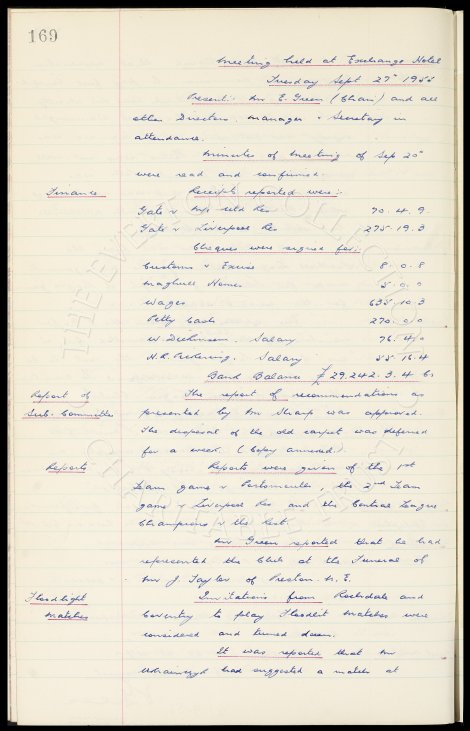 169
Meeting held at Exchange Hotel
Tuesday Sept 27th 1955
Present:- Mr E. Green (Chair) and all
other Directors. Manager & Secretary in
attendance.
Minutes of Meeting of Sep 20th
were read and confirmed.
Finance Receipts reported were:-
Gate v M/c Utd Res 70. 4. 9.
Gate v Liverpool Res 275. 19. 3
Cheques were signed for:-
Customs & Excise 8. 0. 8
Maghull Homes 5. 0. 0
Wages 635. 10. 3
Petty Cash 270. 0. 0
W. Dickinson. Salary 76. 4. 0
H.R. Pickering. Salary 55. 16. 4
Bank Balance £29,242. 3. 4 Cr
Report of The report of recommendations as
Sub. Committee presented by Mr Sharp was approved.
The disposal of the old carpet was deferred
for a week. (Copy annexed.)
Reports Reports were given of the 1st
Team game v Portsmouth, the 2nd Team
game v Liverpool Res and the Central League
Champions v the Rest.
Mr Green reported that he had
represented the Club at the Funeral of
Mr J. Taylor of Preston N.E.
Floodlight Invitations from Rochdale and
Matches Coventry to play Floodlit matches were
considered and turned down.
It was reported that Mr
had suggested a match at
THE EVERTON COLLECTION
CHARITABLE TRUST